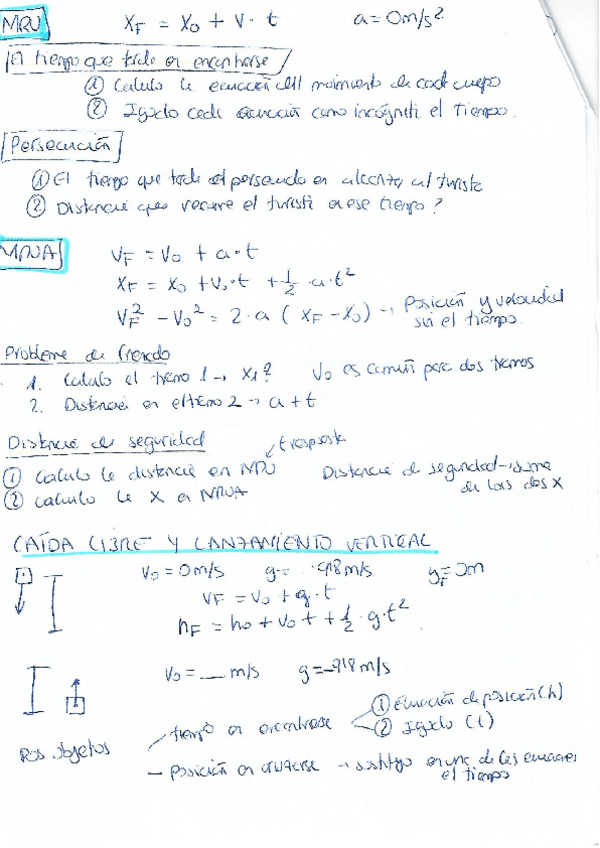 MRU   X_F = X_0 + V · t   a = 0 m/s²
El tiempo que tarda en encontrarse
① Calculo la ecuación del movimiento de cada cuerpo
② Igualo cada ecuación como incógnita el tiempo.
Persecución
① El tiempo que tarde el persiguiendo en alcanzar al turista
② Distancia que recorre el turista en ese tiempo?
MRUA   V_F = V_0 + a · t
X_F = X_0 + V_0 · t + 1/2 · a · t²
V_F² - V_0² = 2 · a ( X_F - X_0 ) → Posición y velocidad
sin el tiempo.
Problema de frenado
1. Calculo el tramo 1 → X_1?   V_0 es común para dos tramos
2. Distancia en el tramo 2 → a + t
Distancia de seguridad
t respuesta
① Calculo la distancia en MRU   Distancia de seguridad → suma
② Calculo la X en MRUA   de las dos X
CAÍDA LIBRE Y LANZAMIENTO VERTICAL
V_0 = 0 m/s   g = -9'8 m/s   y_F = 0 m
V_F = V_0 + g · t
h_F = h_0 + V_0 t + 1/2 · g · t²
V_0 = __ m/s   g = -9'8 m/s
① Ecuación de posición (h)
Dos objetos   tiempo en encontrarse   ② Igualo (t)
- Posición en cruzarse → sustituyo en una de las ecuaciones
el tiempo